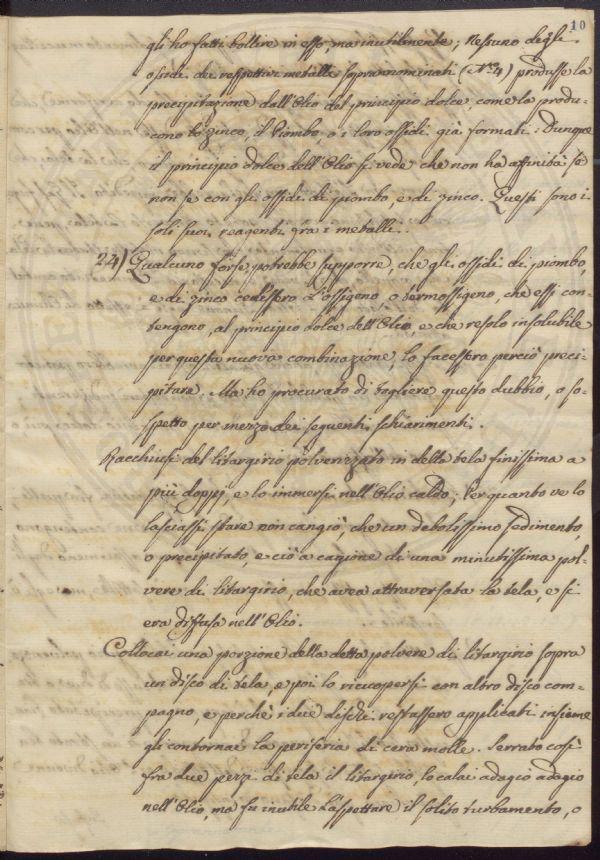 10
gli ho fatti bollire in esso, ma inutilmente; Nessuno degli
ossidi dei rispettivi metalli sopranominati (N.° 4) produsse la
precipitazione dall'Olio del principio dolce, come la produ-
cono lo zinco, il Piombo o i loro ossidi già formati. Dunque
il principio dolce dell'Olio si vede che non ha affinità se
non se con gli ossidi di piombo, e di zinco. Questi sono i
soli suoi reagenti fra i metalli.
24) Qualcuno forse potrebbe supporre, che gli ossidi di piombo,
e di zinco cedessero l'ossigeno, o termossigeno, che essi con-
tengono, al principio dolce dell'Olio, e che resolo insolubile
per questa nuova combinazione, lo facessero perciò preci-
pitare. Ma ho procurato di togliere questo dubbio, o so-
spetto per mezzo dei seguenti schiarimenti.
Racchiusi del litargirio polverizzato in della tela finissima a
più doppj, e lo immersi nell'Olio caldo; Per quanto ve lo
lasciassi stare non cangiò, che un debolissimo sedimento,
o precipitato, e ciò a cagione di una minutissima pol-
vere di litargirio, che avea attraversata la tela, e si
era diffusa nell'Olio.
Collocai una porzione della detta polvere di litargirio sopra
un disco di tela, e poi lo ricopersi con altro disco com-
pagno, e perchè i due dischi restassero applicati insieme
gli contornai la periferia di cera molle. Serrato così
fra due pezzi di tela il litargirio, lo calai adagio adagio
nell'Olio, ma fu inutile l'aspettare il solito turbamento, o